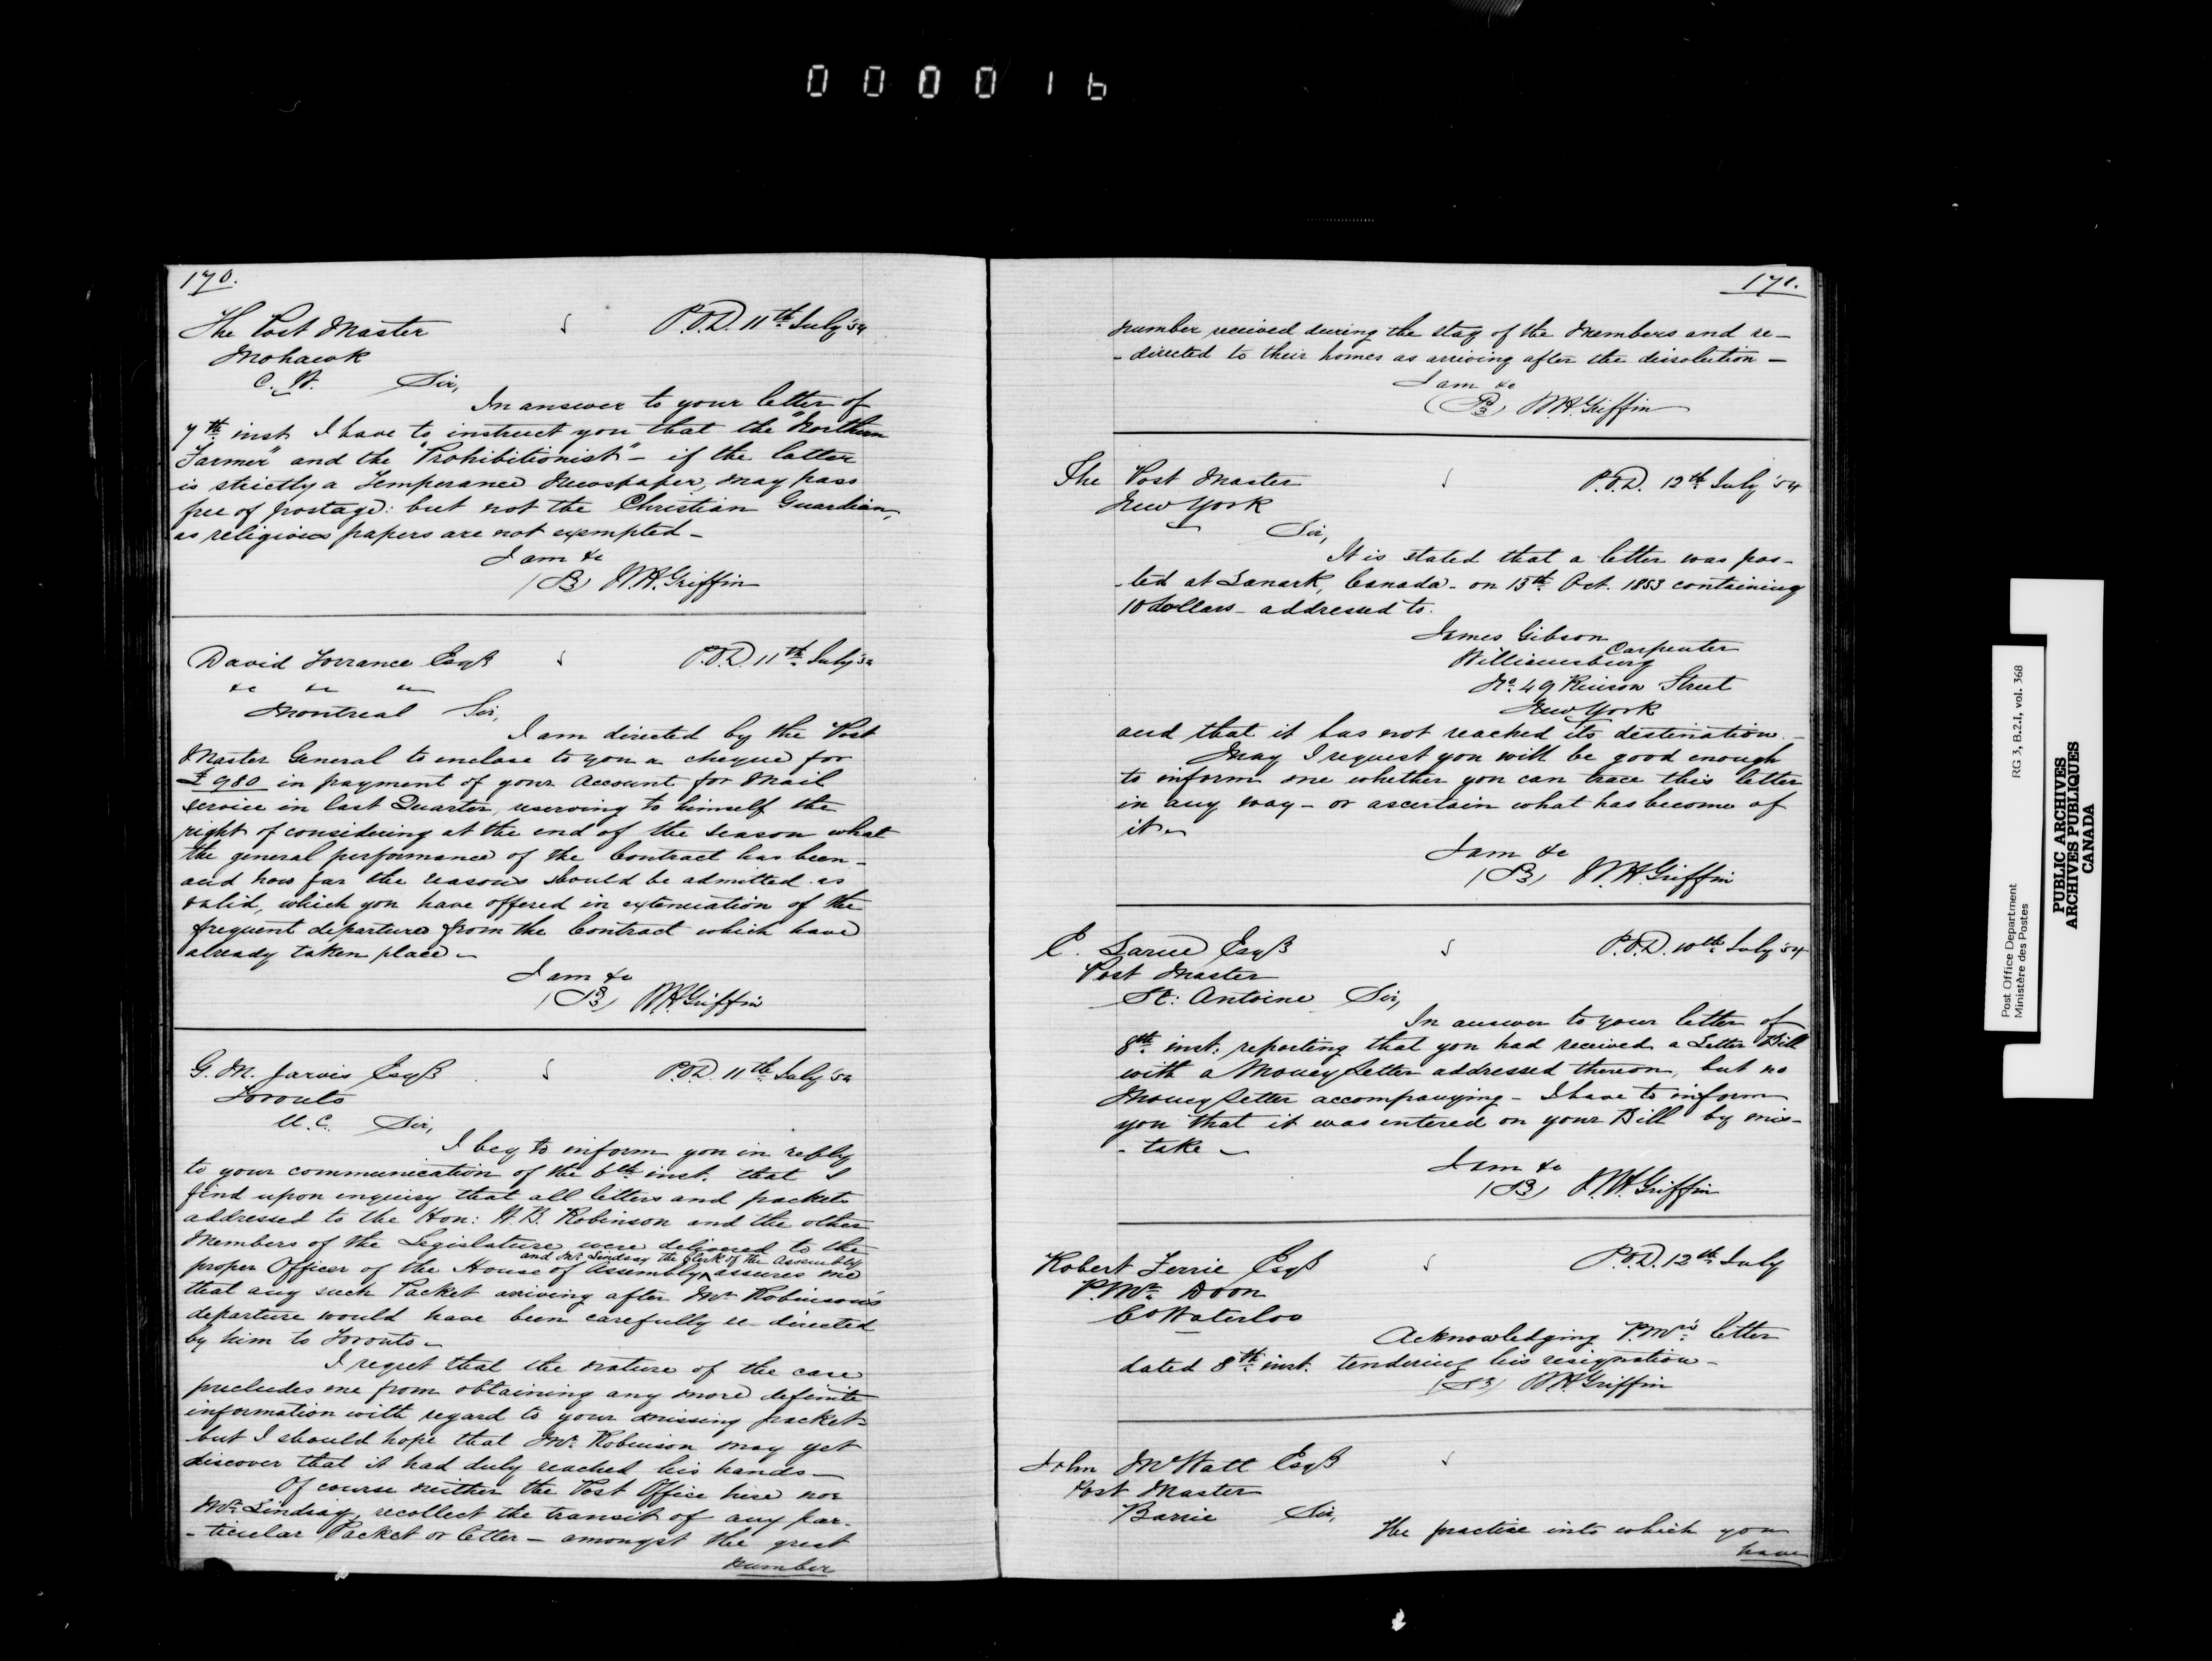 000016
170.
The Post Master P.O.D. 11th July '54
Mohawk
C. W. Sir,
In answer to your letter of
7th inst. I have to instruct you that the "Northern
Farmer" and the "Prohibitionist" - if the latter
is strictly a Temperance Newspaper, may pass
free of postage: but not the Christian Guardian,
as religious papers are not exempted -
I am &c
W.H. Griffin
David Torrance Esqr P.O.D. 11th July '54
&c &c &c
Montreal Sir,
I am directed by the Post
Master General to enclose to you a cheque for
£980 in payment of your Account for Mail
service in last Quarter, reserving to himself the
right of considering at the end of the season what
the general performance of the Contract has been -
and how far the reasons should be admitted as
valid, which you have offered in extenuation of the
frequent departures from the Contract which have
already taken place -
I am &c
W.H. Griffin
G. M. Jarvis Esqr P.O.D. 11th July '54
Toronto
U.C. Sir,
I beg to inform you in reply
to your communication of the 6th inst. that I
find upon inquiry that all letters and packets
addressed to the Hon: W. B. Robinson and the other
Members of the Legislature were delivered to the
and Mr. Lindsay the Clerk of the Assembly
proper Officer of the House of Assembly, assures me
that any such Packet arriving after Mr. Robinson's
departure would have been carefully re-directed
by him to Toronto -
I regret that the nature of the case
precludes me from obtaining any more definite
information with regard to your missing packet -
but I should hope that Mr. Robinson may yet
discover that it had duly reached his hands -
Of course neither the Post Office here nor
Mr. Lindsay, recollect the transit of any par-
-ticular Packet or letter - amongst the great
number
171.
number received during the stay of the Members and re-
-directed to their homes as arriving after the dissolution -
I am &c
W.H. Griffin
The Post Master P.O.D. 12th July '54
New York
Sir,
It is stated that a letter was pos-
-ted at Lanark, Canada - on 13th Oct. 1853 containing
10 dollars - addressed to.
James Gibson
Carpenter
Williamsburg
No. 49 Street
New York
and that it has not reached its destination. -
May I request you will be good enough
to inform me whether you can trace this letter
in any way - or ascertain what has become of
it -
I am &c
W.H. Griffin
E. Larue Esqr P.O.D. 10th July '54
Post Master
St: Antoine Sir,
In answer to your letter of
8th inst: reporting that you had received a Letter Bill
with a Money Letter addressed thereon, but no
Money Letter accompanying - I have to inform
you that it was entered on your Bill by mis-
-take -
I am &c
W.H. Griffin
Robert Ferrie Esqr P.O.D. 12th July
P.Mr. Doon
Co Waterloo
Acknowledging P.Mr's letter
dated 8th inst. tendering his resignation -
W.H. Griffin
John McWatt Esqr
Post Master
Barrie Sir,
The practice into which you
have
Post Office Department
Ministère des Postes
RG 3, B.2.I, vol. 368
PUBLIC ARCHIVES
ARCHIVES PUBLIQUES
CANADA